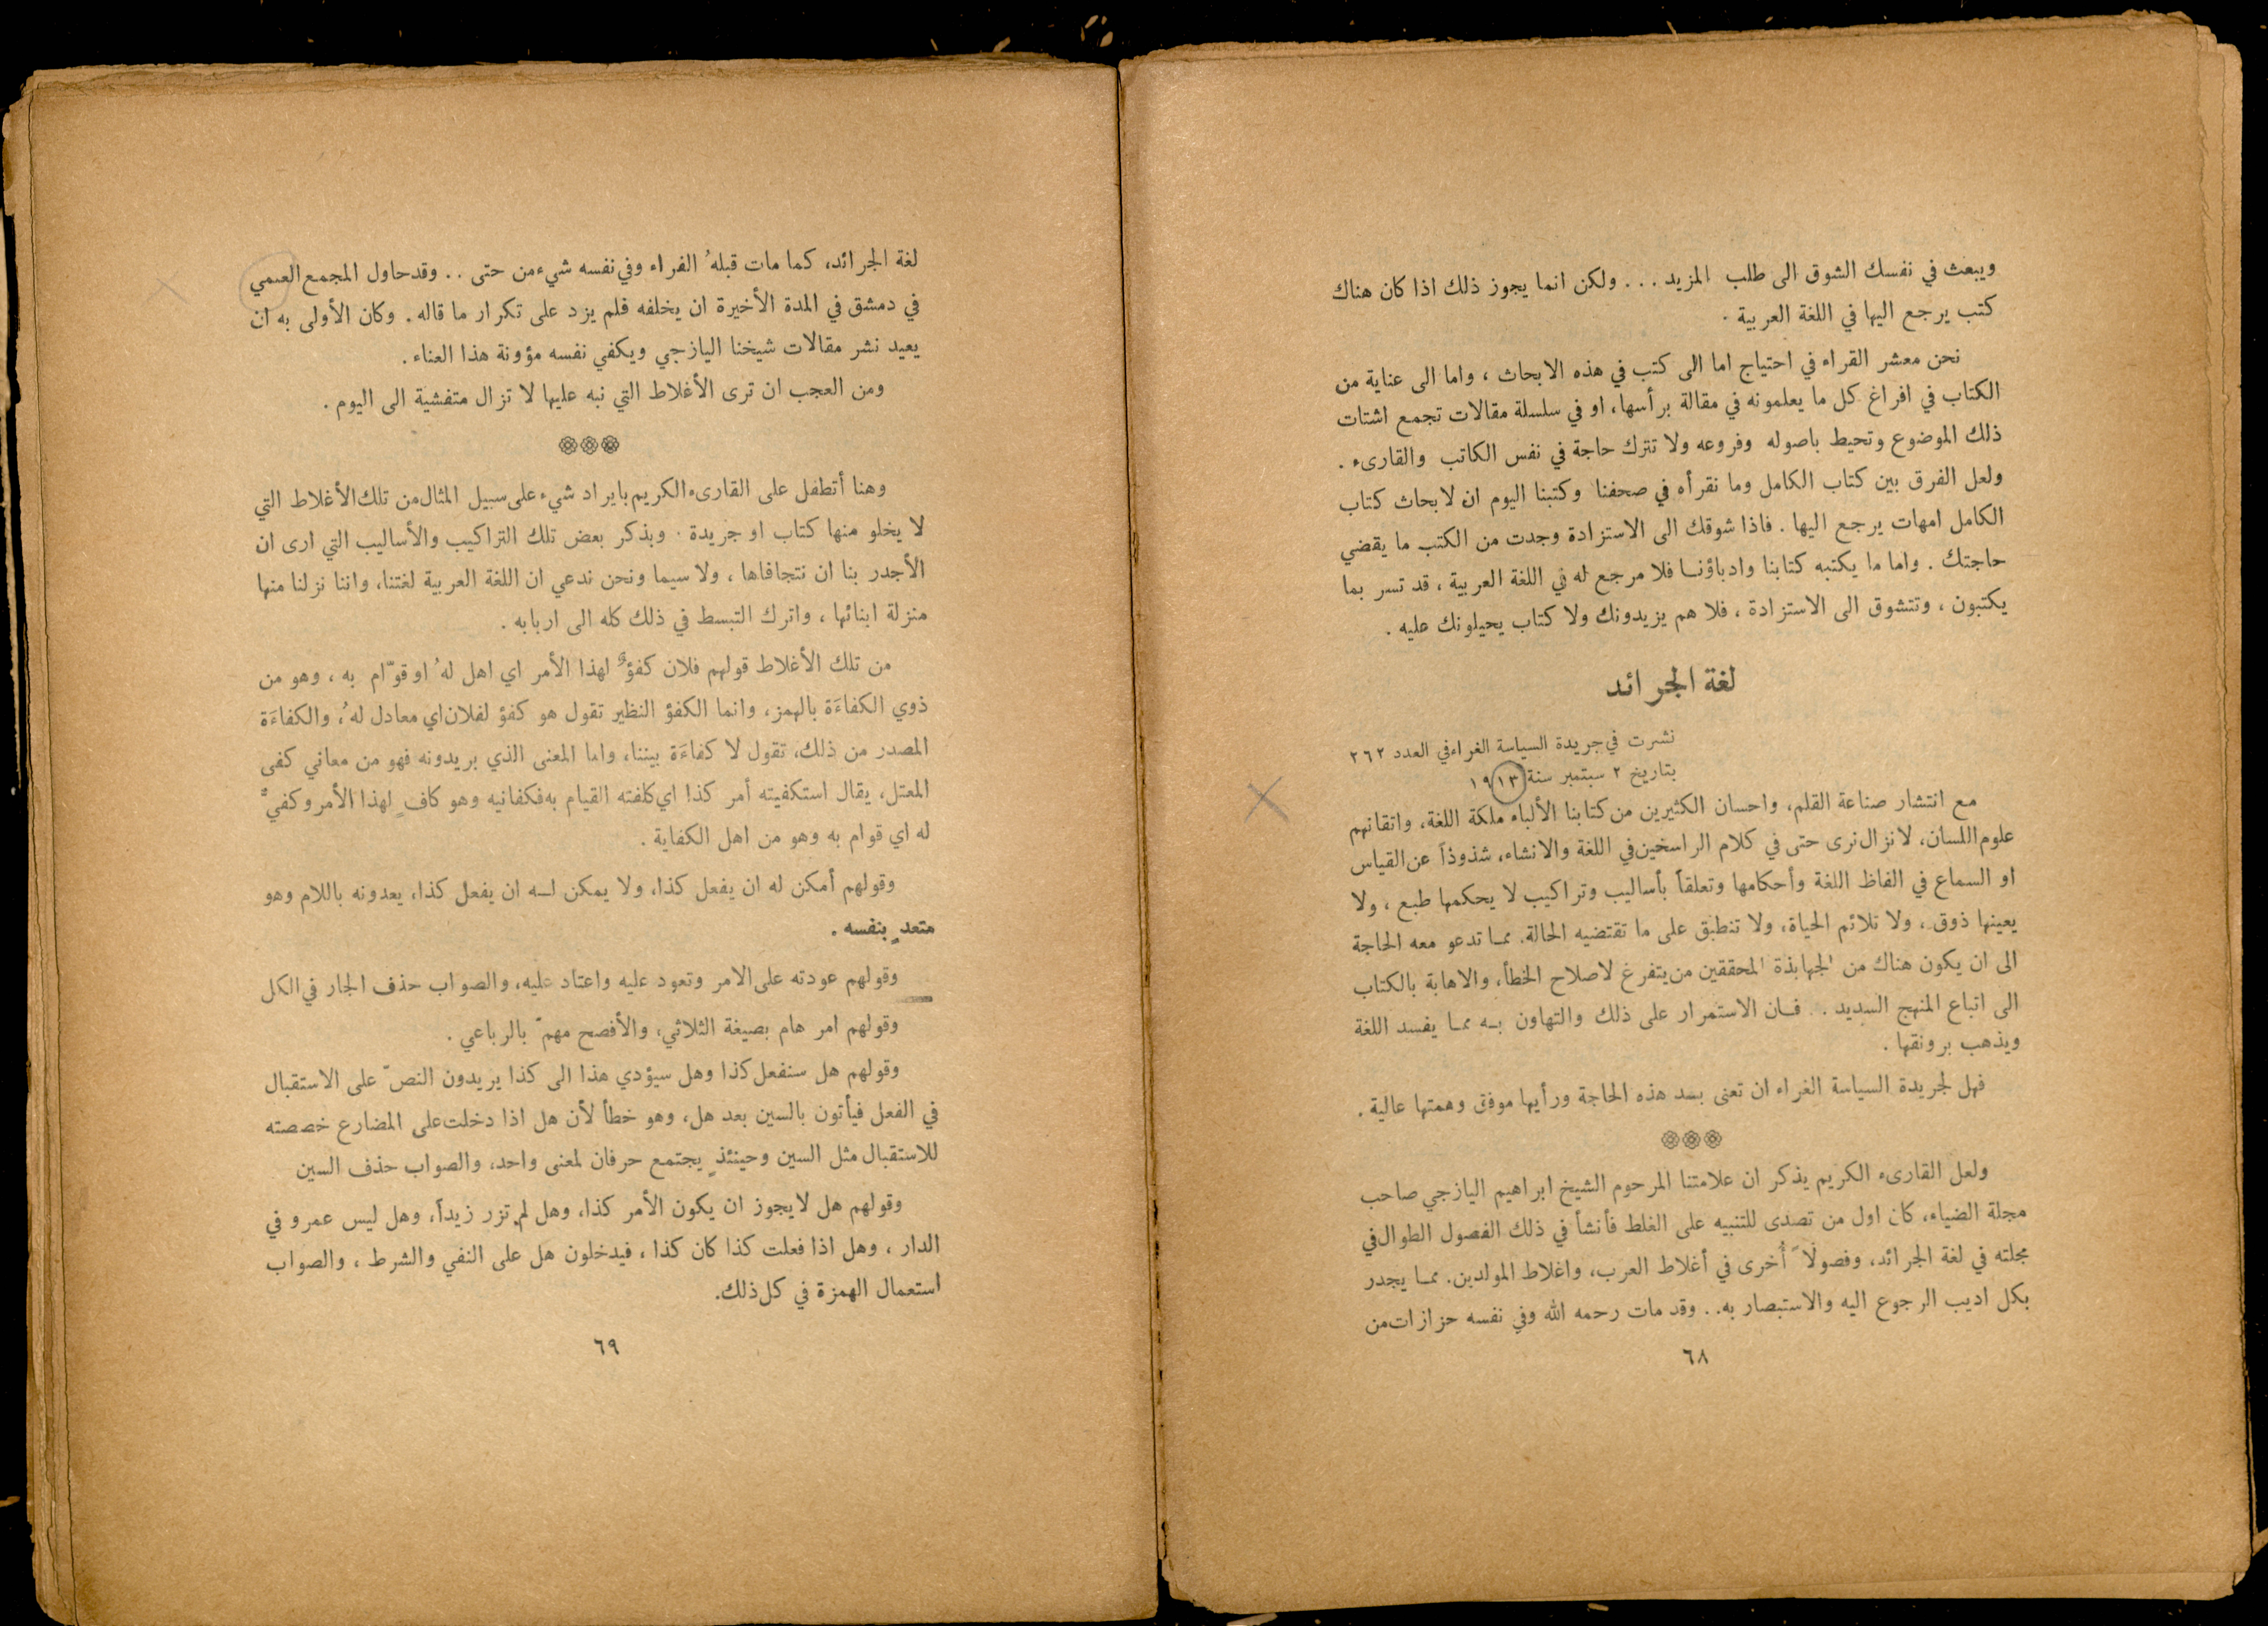 ويبعث في نفسك الشوق الى طلب المزيد ... ولكن انما يجوز ذلك اذا كان هناك
كتب يرجع اليها في اللغة العربية .
نحن معشر القراء في احتياج اما الى كتب في هذه الابحاث ، واما الى عناية من
الكتاب في افراغ كل ما يعلمونه في مقالة برأسها، او في سلسلة مقالات تجمع اشتات
ذلك الموضوع وتحيط باصوله وفروعه ولا تترك حاجة في نفس الكاتب والقارىء .
ولعل الفرق بين كتاب الكامل وما نقرأه في صحفنا وكتبنا اليوم ان لابحاث كتاب
الكامل امهات يرجع اليها . فاذا شوقك الى الاستزادة وجدت من الكتب ما يقضي
حاجتك . واما ما يكتبه كتابنا وادباؤنا فلا مرجع له في اللغة العربية ، قد تسر بما
يكتبون ، وتتشوق الى الاستزادة ، فلا هم يزيدونك ولا كتاب يحيلونك عليه .
لغة الجرائد
نشرت في جريدة السياسة الغراء في العدد ٢٦٢
بتاريخ ٢ سبتمبر سنة ١٩١٣
مع انتشار صناعة القلم، واحسان الكثيرين من كتابنا الألباء ملكة اللغة، واتقانهم
علوم اللسان، لا نزال نرى حتى في كلام الراسخين في اللغة والانشاء، شذوذاً عن القياس
او السماع في الفاظ اللغة وأحكامها وتعلقاً بأساليب وتراكيب لا يحكمها طبع ، ولا
يعينها ذوق ، ولا تلائم الحياة، ولا تنطبق على ما تقتضيه الحالة. مما تدعو معه الحاجة
الى ان يكون هناك من الجهابذة المحققين من يتفرغ لاصلاح الخطأ، والاهابة بالكتاب
الى اتباع المنهج السديد . . فان الاستمرار على ذلك والتهاون به مما يفسد اللغة
ويذهب برونقها .
فهل لجريدة السياسة الغراء ان تعنى بسد هذه الحاجة ورأيها موفق وهمتها عالية .
ولعل القارىء الكريم يذكر ان علامتنا المرحوم الشيخ ابراهيم اليازجي صاحب
مجلة الضياء، كان اول من تصدى للتنبيه على الغلط فأنشأ في ذلك الفصول الطوال في
مجلته في لغة الجرائد، وفصولاً أخرى في أغلاط العرب، واغلاط المولدين. مما يجدر
بكل اديب الرجوع اليه والاستبصار به.. وقد مات رحمه الله وفي نفسه حزازات من
٦٨
لغة الجرائد، كما مات قبلهُ الفراء وفي نفسه شيء من حتى .. وقد حاول المجمع العمي
في دمشق في المدة الأخيرة ان يخلفه فلم يزد على تكرار ما قاله . وكان الأولى به ان
يعيد نشر مقالات شيخنا اليازجي ويكفي نفسه مؤونة هذا العناء .
ومن العجب ان ترى الأغلاط التي نبه عليها لا تزال متفشية الى اليوم .
وهنا أتطفل على القارىء الكريم بايراد شيء على سبيل المثال من تلك الأغلاط التي
لا يخلو منها كتاب او جريدة . وبذكر بعض تلك التراكيب والأساليب التي ارى ان
الأجدر بنا ان نتجافاها ، ولا سيما ونحن ندعي ان اللغة العربية لغتنا، واننا نزلنا منها
منزلة ابنائها ، واترك التبسط في ذلك كله الى اربابه .
من تلك الأغلاط قولهم فلان كفؤٌ لهذا الأمر اي اهل لهُ او قوّام به ، وهو من
ذوي الكفاءَة بالهمز، وانما الكفؤ النظير تقول هو كفؤ لفلان اي معادل لهُ، والكفاءَة
المصدر من ذلك، تقول لا كفاءَة بيننا، واما المعنى الذي يريدونه فهو من معاني كفى
المعتل، يقال استكفيته أمر كذا اي كلفته القيام به فكفانيه وهو كافٍ لهذا الأمر وكفيٌّ
له اي قوام به وهو من اهل الكفاية .
وقولهم أمكن له ان يفعل كذا، ولا يمكن له ان يفعل كذا، يعدونه باللام وهو
متعدٍ بنفسه .
وقولهم عودته على الامر وتعود عليه واعتاد عليه، والصواب حذف الجار في الكل
وقولهم امر هام بصيغة الثلاثي، والأفصح مهمّ بالرباعي .
وقولهم هل سنفعل كذا وهل سيؤدي هذا الى كذا يريدون النصّ على الاستقبال
في الفعل فيأتون بالسين بعد هل، وهو خطأ لأن هل اذا دخلت على المضارع خصصته
للاستقبال مثل السين وحينئذٍ يجتمع حرفان لمعنى واحد، والصواب حذف السين
وقولهم هل لا يجوز ان يكون الأمر كذا، وهل لم تزر زيداً، وهل ليس عمرو في
الدار ، وهل اذا فعلت كذا كان كذا ، فيدخلون هل على النفي والشرط ، والصواب
استعمال الهمزة في كل ذلك.
٦٩